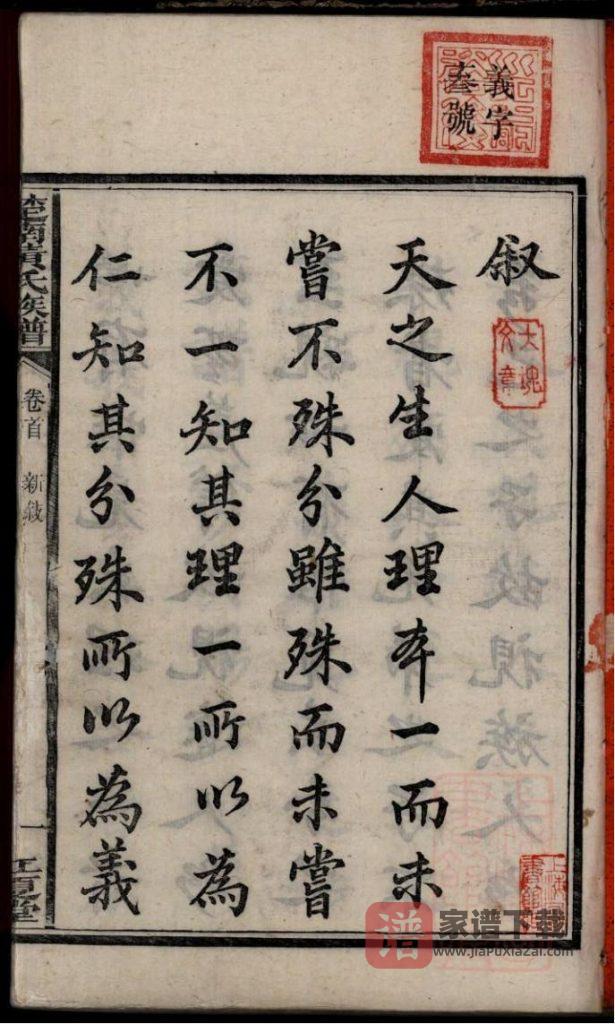 義字
叁號
叙
天之生人理本一而未
嘗不殊分雖殊而未嘗
不一知其理一所以為
仁知其分殊所以為義
黃氏族譜
卷首 新敘
一
家谱下载
www.jiaPuxiazai.com
谱